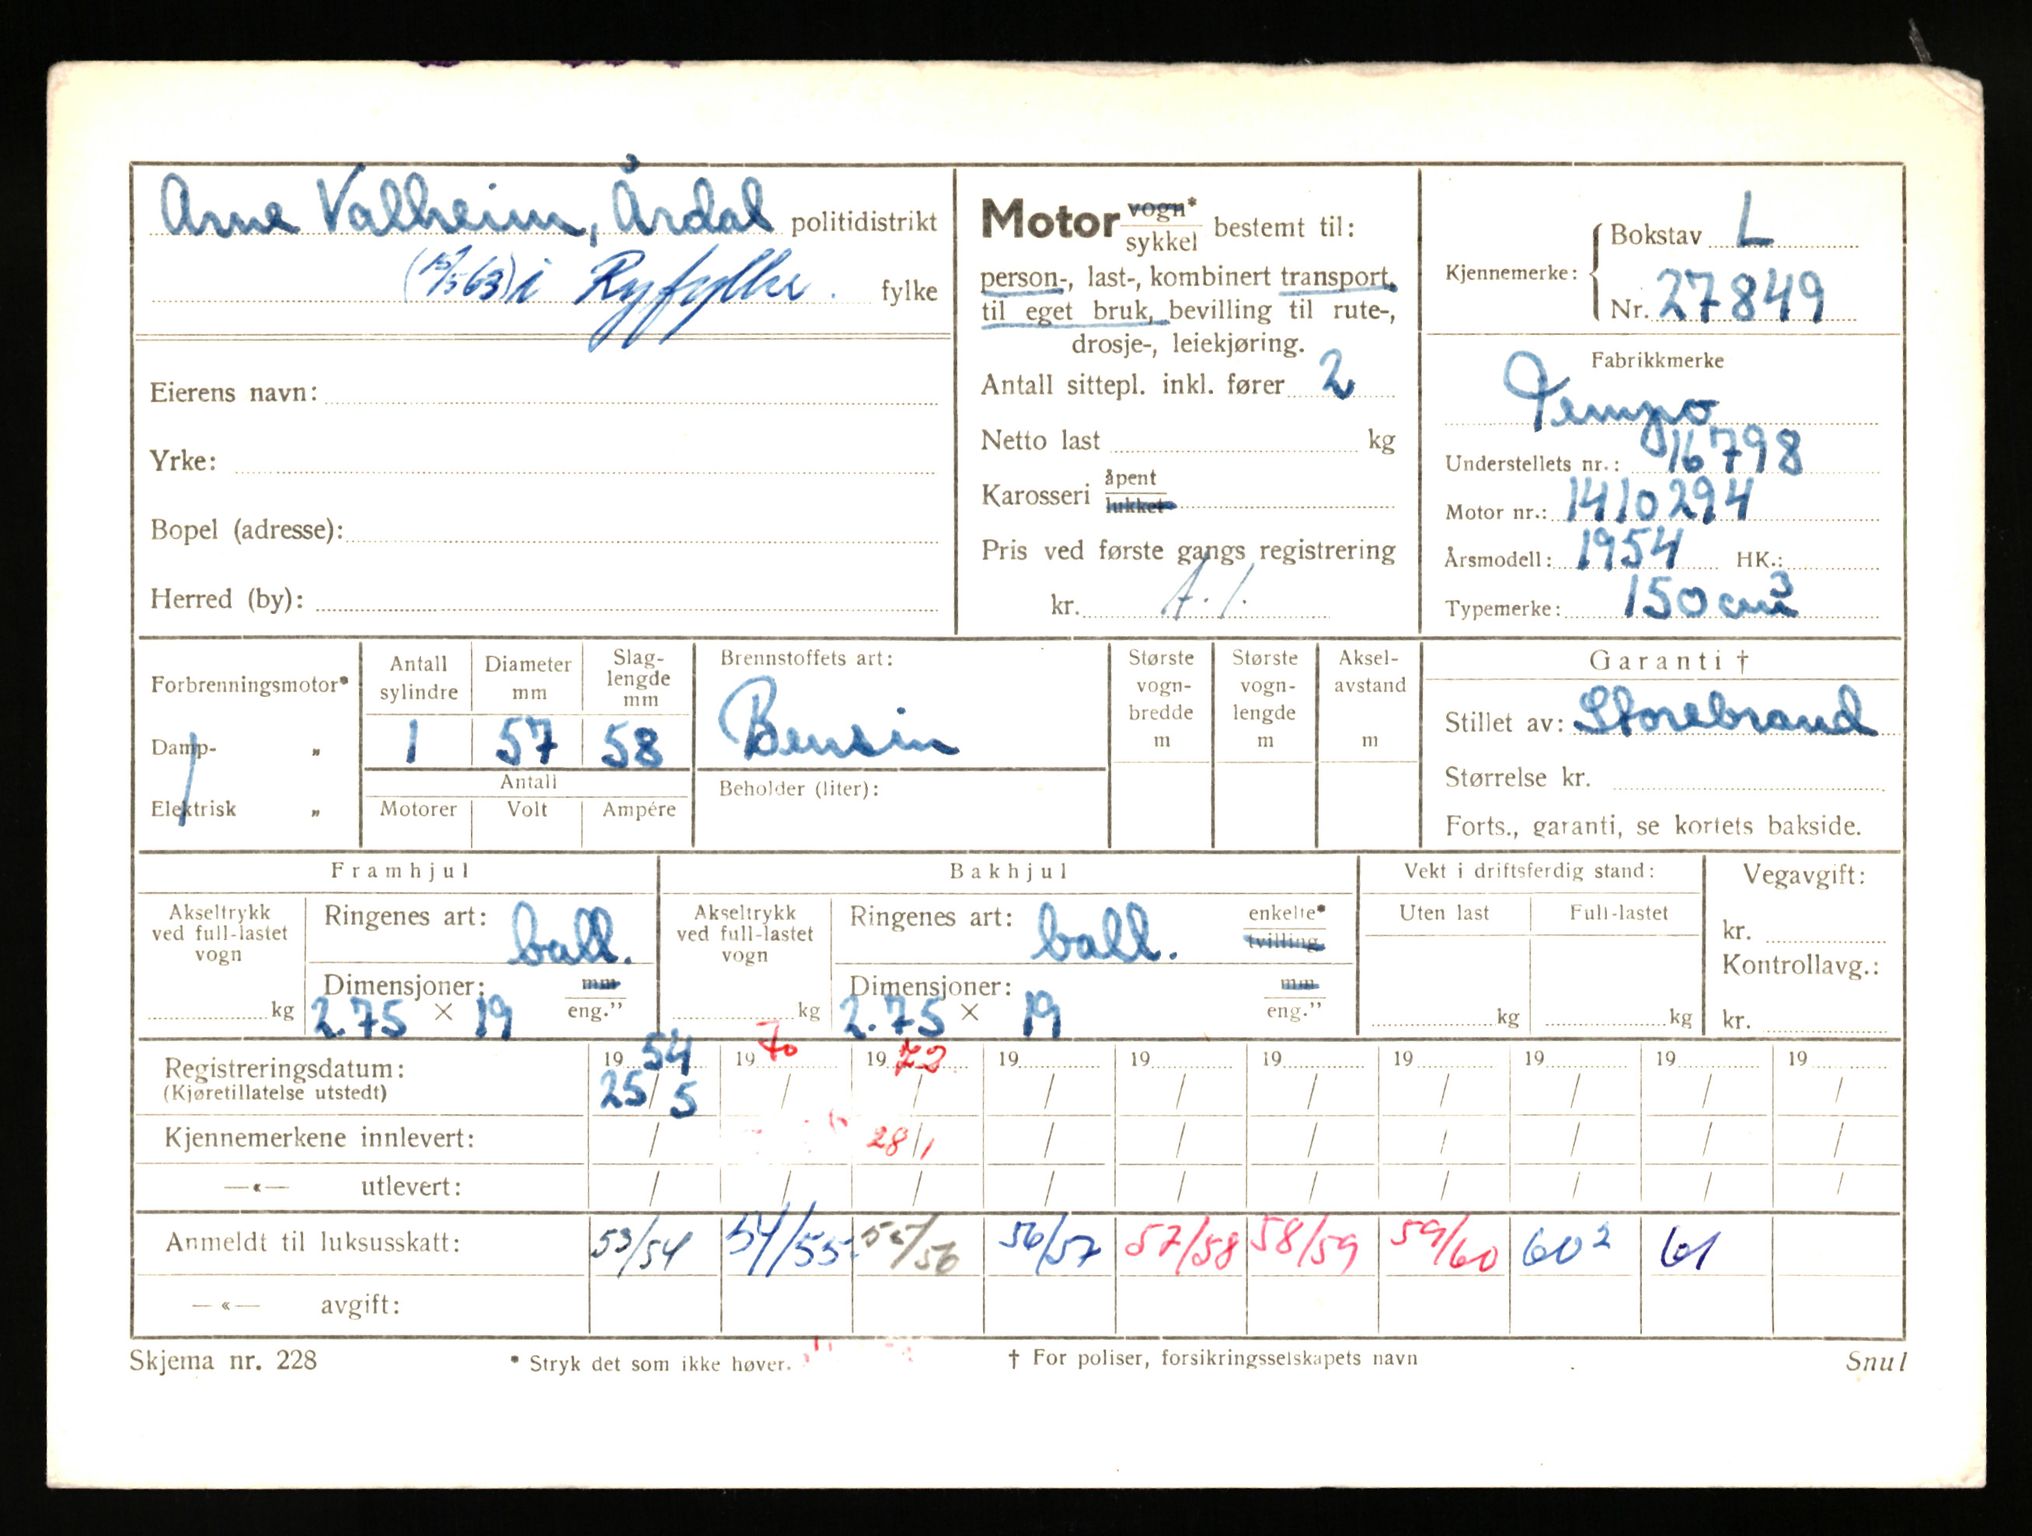 Arne Valheim, Årdal politidistrikt
(15/5 63) i Ryfylke. fylke
Eierens navn:
Yrke:
Bopel (adresse):
Herred (by):
Motor vogn* sykkel bestemt til:
person-, last-, kombinert transport,
til eget bruk, bevilling til rute-,
drosje-, leiekjøring.
Antall sittepl. inkl. fører 2
Netto last kg
Karosseri åpent lukket
Pris ved første gangs registrering
kr.
Kjennemerke: Bokstav L
Nr. 27849
Fabrikkmerke
Tempo
Understellets nr.: 16798
Motor nr.: 1410294
Årsmodell: 1954 HK.:
Typemerke: 150 cm3
Forbrenningsmotor*
Damp- „
Elektrisk „
Antall sylindre Diameter mm Slag-lengde mm
1 57 58
Antall
Motorer Volt Ampére
Brennstoffets art:
Bensin
Beholder (liter):
Største vogn-bredde m
Største vogn-lengde m
Aksel-avstand m
Garanti †
Stillet av: Storebrand
Størrelse kr.
Forts., garanti, se kortets bakside.
Framhjul
Akseltrykk ved full-lastet vogn
kg
Ringenes art: ball.
Dimensjoner: mm
2.75 × 19 eng."
Bakhjul
Akseltrykk ved full-lastet vogn
kg
Ringenes art: ball. enkelte* tvilling
Dimensjoner: mm
2.75 × 19 eng."
Vekt i driftsferdig stand:
Uten last Full-lastet
kg kg
Vegavgift:
kr.
Kontrollavg.:
kr.
Registreringsdatum: 1954 1970 1972 19 19 19 19 19 19 19
(Kjøretillatelse utstedt) 25/5 / / / / / / / / /
Kjennemerkene innlevert: / 28/1 / / / / / / /
—«— utlevert: / / / / / / / / / /
Anmeldt til luksusskatt: 53/54 54/55 55/56 56/57 57/58 58/59 59/60 60² 61
—«— avgift:
Skjema nr. 228 * Stryk det som ikke høver. † For poliser, forsikringsselskapets navn Snul